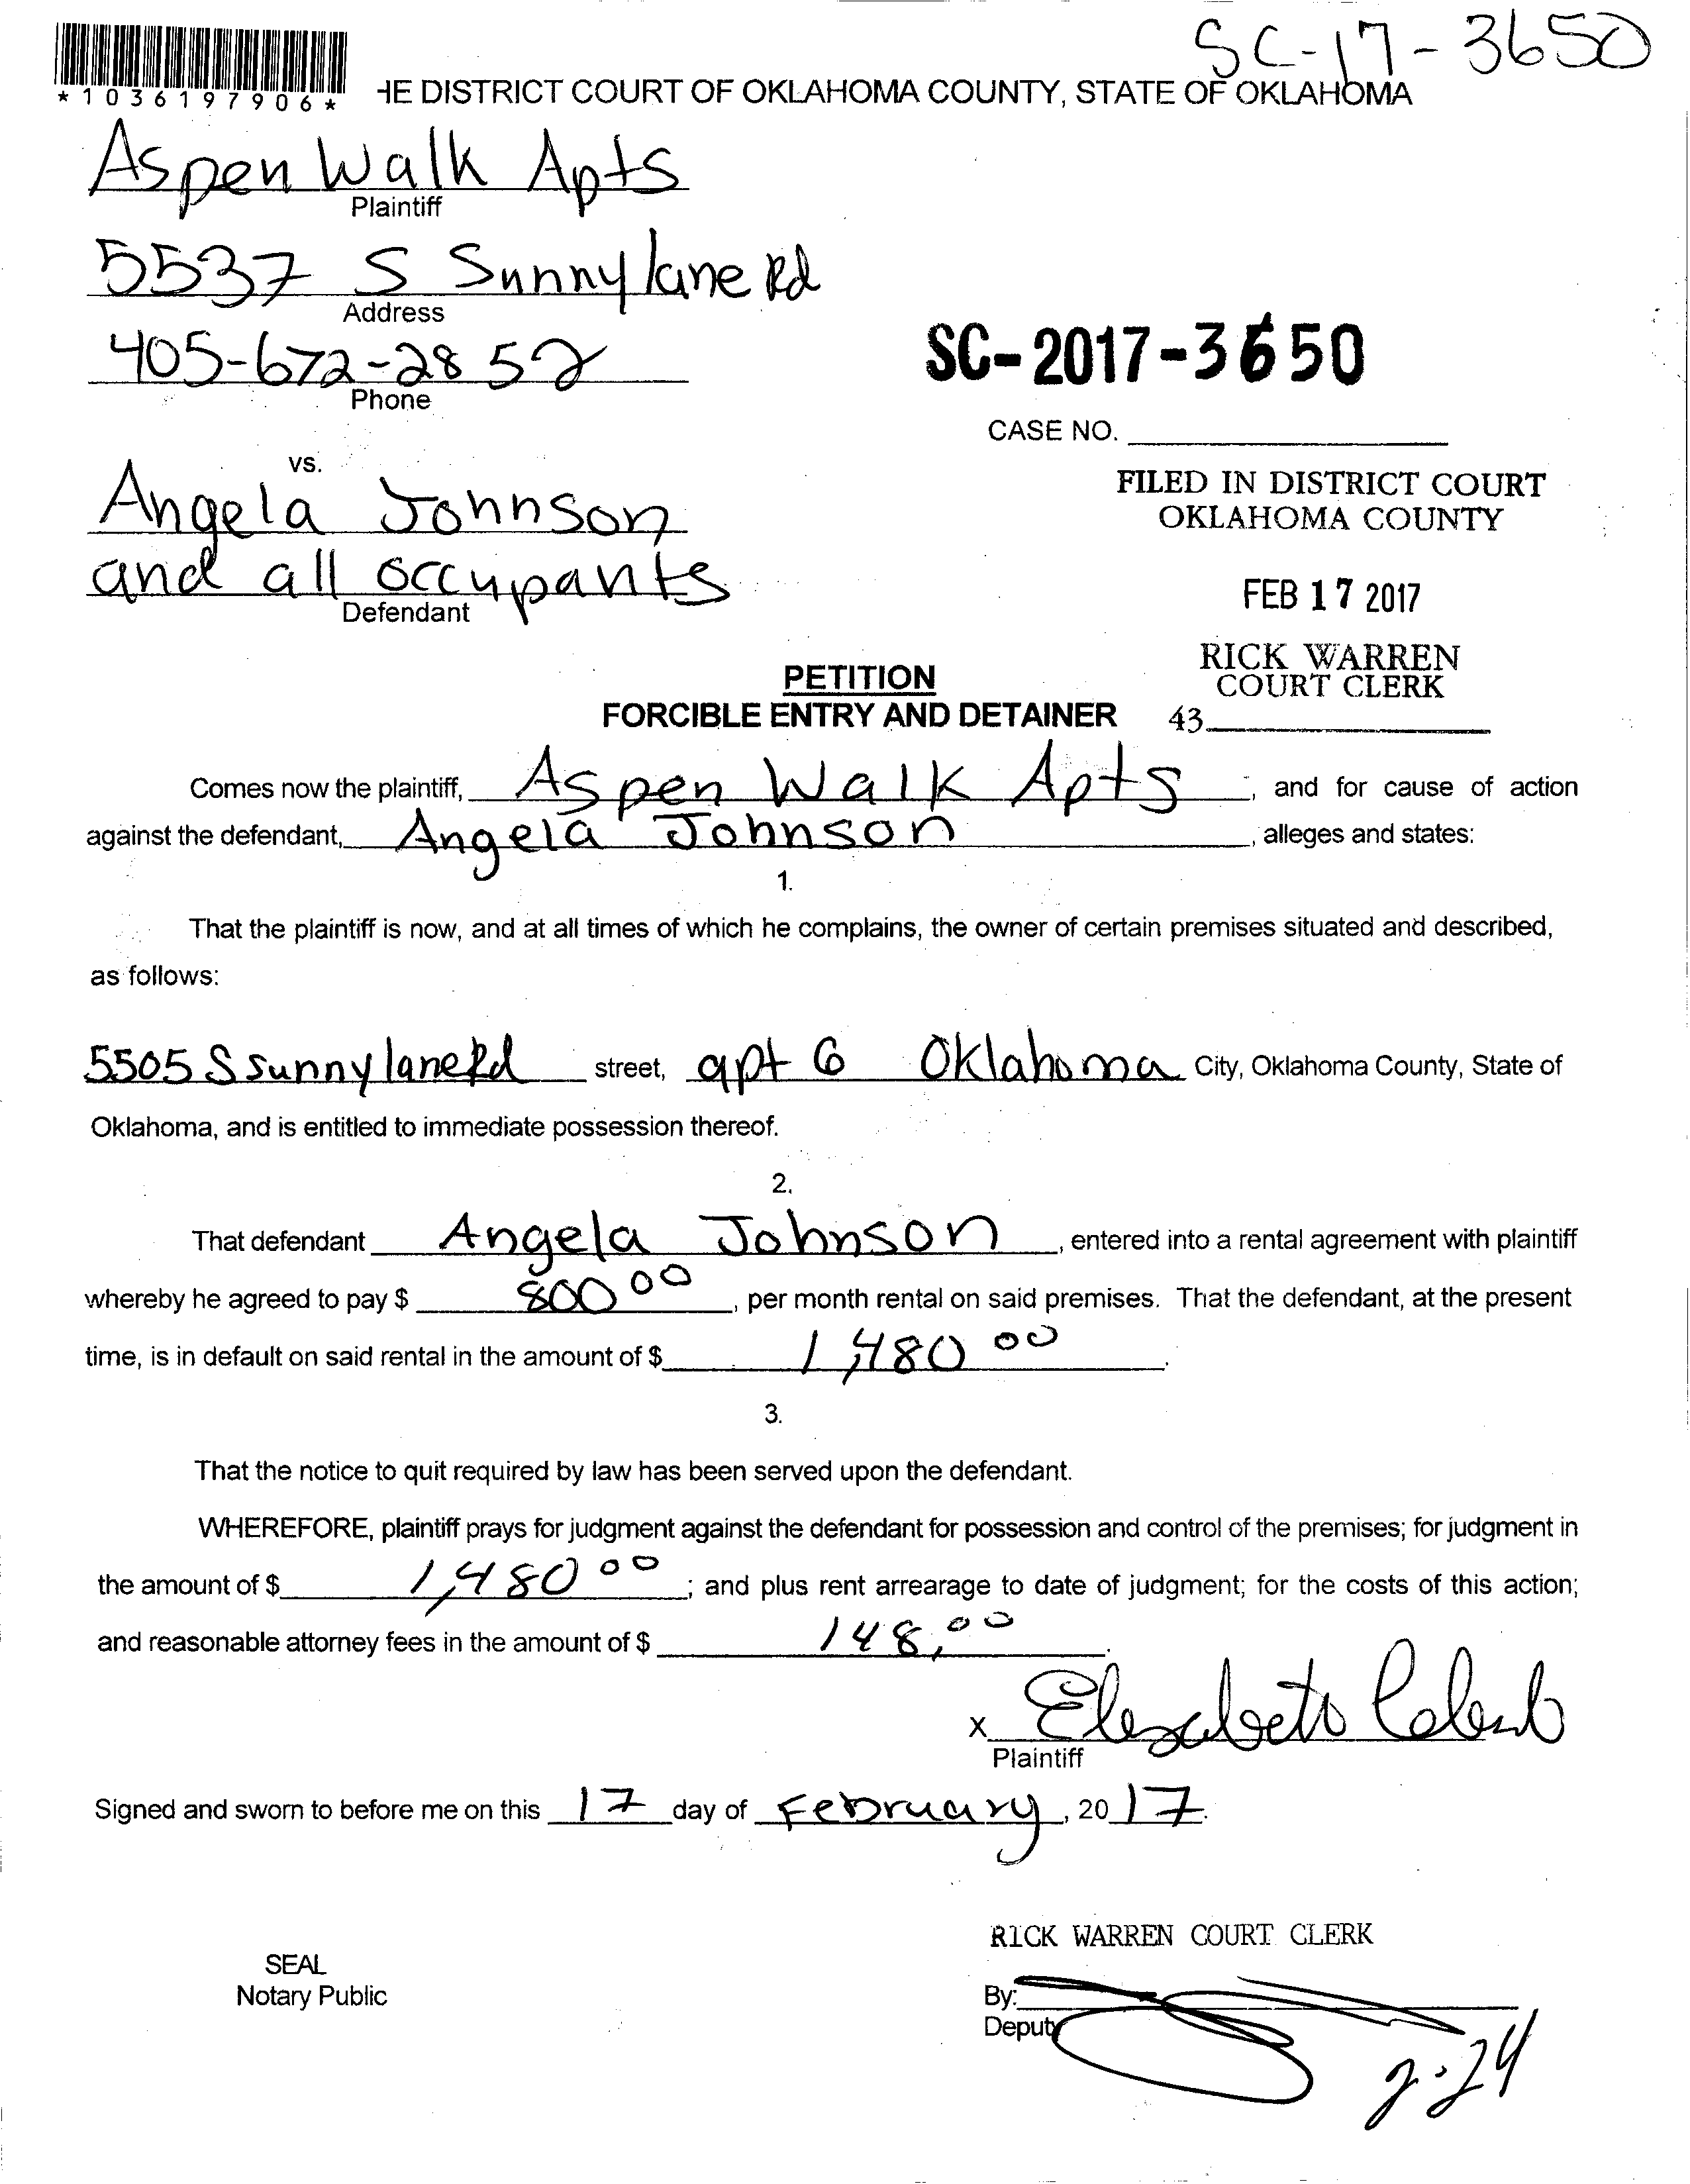 SC-17-3650
*1036197906*
HE DISTRICT COURT OF OKLAHOMA COUNTY, STATE OF OKLAHOMA
Aspen Walk Apts
Plaintiff
5537 S Sunnylane Rd
Address
405-672-2852
Phone
SC-2017-3650
CASE NO.
vs.
FILED IN DISTRICT COURT
OKLAHOMA COUNTY
Angela Johnson
and all occupants
Defendant
FEB 17 2017
RICK WARREN
COURT CLERK
43
PETITION
FORCIBLE ENTRY AND DETAINER
Comes now the plaintiff, Aspen Walk Apts, and for cause of action
against the defendant, Angela Johnson, alleges and states:
1.
That the plaintiff is now, and at all times of which he complains, the owner of certain premises situated and described,
as follows:
5505 S Sunnylane Rd street, apt 6 Oklahoma City, Oklahoma County, State of
Oklahoma, and is entitled to immediate possession thereof.
2.
That defendant Angela Johnson, entered into a rental agreement with plaintiff
whereby he agreed to pay $ 800 00, per month rental on said premises. That the defendant, at the present
time, is in default on said rental in the amount of $ 1,480 00.
3.
That the notice to quit required by law has been served upon the defendant.
WHEREFORE, plaintiff prays for judgment against the defendant for possession and control of the premises; for judgment in
the amount of $ 1,480 00; and plus rent arrearage to date of judgment; for the costs of this action;
and reasonable attorney fees in the amount of $ 148.00.
x
Plaintiff
Signed and sworn to before me on this 17 day of February, 2017.
RICK WARREN COURT CLERK
SEAL
Notary Public
By:
Deputy